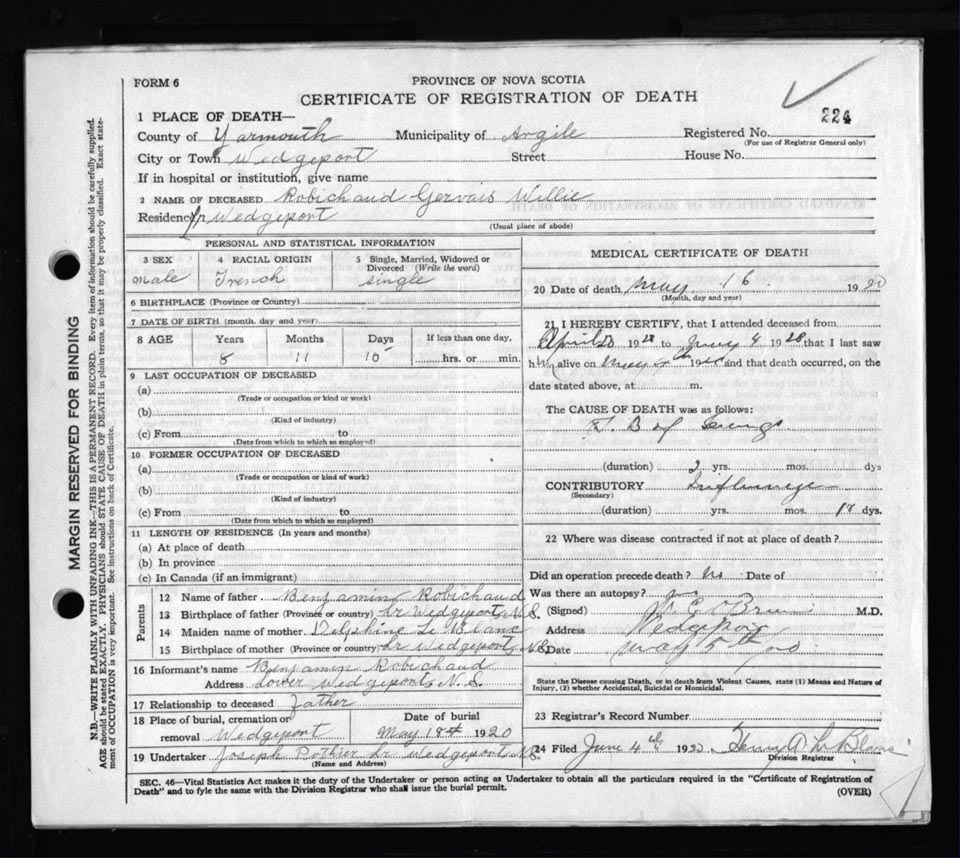 FORM 6
PROVINCE OF NOVA SCOTIA
CERTIFICATE OF REGISTRATION OF DEATH
224
1 PLACE OF DEATH—
County of Yarmouth Municipality of Argile Registered No.
(For use of Registrar General only)
City or Town Wedgeport Street House No.
If in hospital or institution, give name
2 NAME OF DECEASED Robichaud Gervais Willie
Residence Lr Wedgeport
(Usual place of abode)
PERSONAL AND STATISTICAL INFORMATION
3 SEX 4 RACIAL ORIGIN 5 Single, Married, Widowed or Divorced (Write the word)
Male French Single
6 BIRTHPLACE (Province or Country)
7 DATE OF BIRTH (month, day and year)
8 AGE Years Months Days If less than one day,
8 11 10 hrs. or min.
9 LAST OCCUPATION OF DECEASED
(a)
(Trade or occupation or kind or work)
(b)
(Kind of industry)
(c) From to
(Date from which to which so employed)
10 FORMER OCCUPATION OF DECEASED
(a)
(Trade or occupation or kind of work)
(b)
(Kind of industry)
(c) From to
(Date from which to which so employed)
11 LENGTH OF RESIDENCE (In years and months)
(a) At place of death
(b) In province
(c) In Canada (if an immigrant)
Parents
12 Name of father Benjamin Robichaud
13 Birthplace of father (Province or country) Lr Wedgeport, N.S.
14 Maiden name of mother Delphine Le Blanc
15 Birthplace of mother (Province or country) Lr Wedgeport, N.S.
16 Informant's name Benjamin Robichaud
Address Lower Wedgeport, N.S.
17 Relationship to deceased Father
18 Place of burial, cremation or removal Wedgeport Date of burial May 18th 1920
19 Undertaker Joseph Pothier Lr Wedgeport N.S.
(Name and Address)
MEDICAL CERTIFICATE OF DEATH
20 Date of death May 16 1920
(Month, day and year)
21 I HEREBY CERTIFY, that I attended deceased from
April 20 1920 to 4 1920 that I last saw
h alive on May 19 and that death occurred, on the
date stated above, at m.
The CAUSE OF DEATH was as follows:
T. B of Lungs
(duration) 2 yrs. mos. dys
CONTRIBUTORY Influenza
(Secondary)
(duration) yrs. mos. 18 dys.
22 Where was disease contracted if not at place of death?
Did an operation precede death? No Date of
Was there an autopsy? no
(Signed) M.D.
Address Wedgeport
Date May 5th 20
State the Disease causing Death, or in death from Violent Causes, state (1) Means and Nature of
Injury, (2) whether Accidental, Suicidal or Homicidal.
23 Registrar's Record Number
24 Filed June 4th 1920 Henry A Le Blanc
Division Registrar
SEC. 46—Vital Statistics Act makes it the duty of the Undertaker or person acting as Undertaker to obtain all the particulars required in the "Certificate of Registration of
Death" and to fyle the same with the Division Registrar who shall issue the burial permit. (OVER)
MARGIN RESERVED FOR BINDING
N.B.—WRITE PLAINLY WITH UNFADING INK—THIS IS A PERMANENT RECORD. Every item of information should be carefully supplied.
AGE should be stated EXACTLY. PHYSICIANS should STATE CAUSE OF DEATH in plain terms, so that it may be properly classified. Exact state-
ment of OCCUPATION is very important. See instructions on back of Certificate.